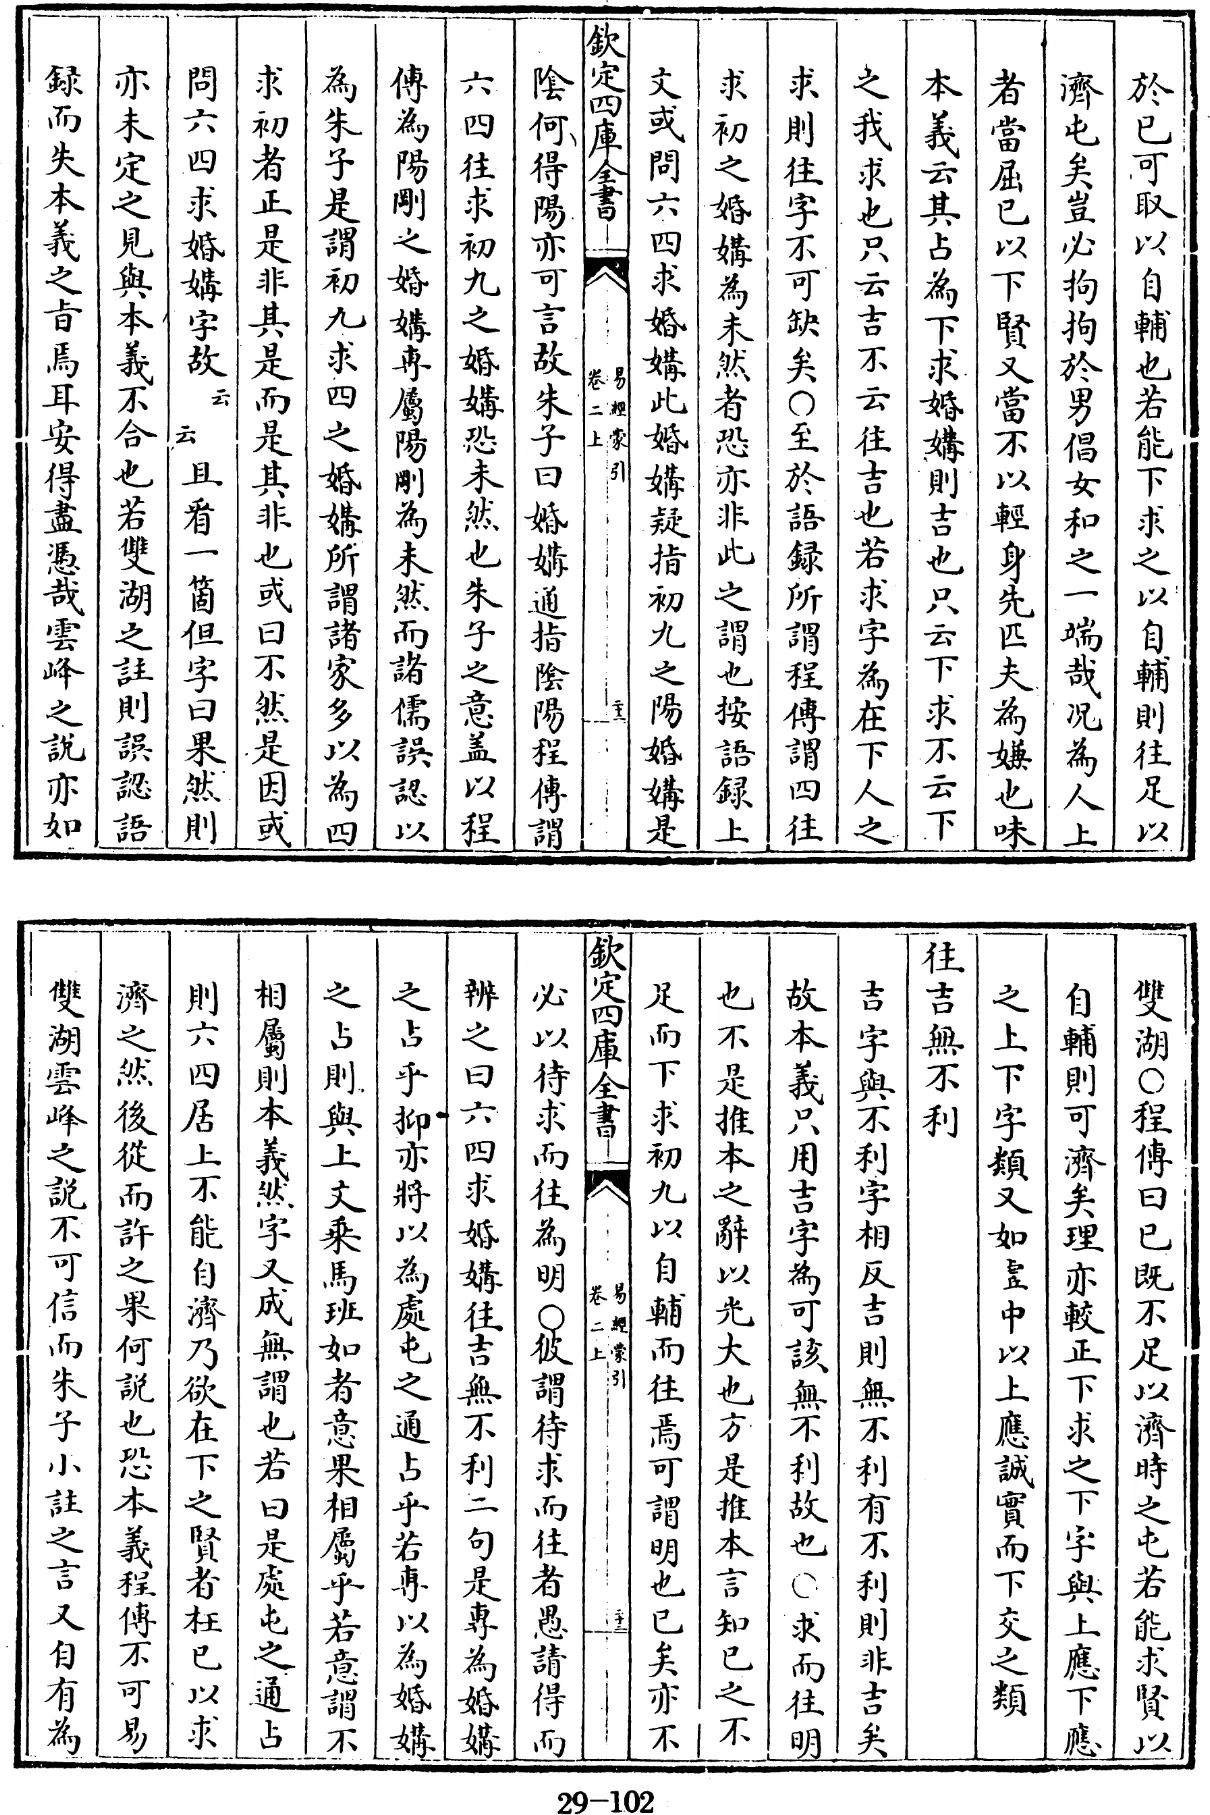 於已可取以自輔也若能下求之以自輔則往足以
濟屯矣豈必拘拘於男倡女和之一端哉况為人上
者當屈已以下賢又當不以輕身先匹夫為嫌也味
本義云其占為下求婚媾則吉也只云下求不云下
之我求也只云吉不云往吉也若求字為在下人之
求則往字不可缺矣○至於語録所謂程傳謂四往
求初之婚媾為未然者恐亦非此之謂也按語録上
文或問六四求婚媾此婚媾疑指初九之陽婚媾是
欽定四庫全書
易經蒙引
卷二上
二十二
陰何得陽亦可言故朱子曰婚媾通指陰陽程傳謂
六四往求初九之婚媾恐未然也朱子之意盖以程
傳為陽剛之婚媾専屬陽剛為未然而諸儒誤認以
為朱子是謂初九求四之婚媾所謂諸家多以為四
求初者正是非其是而是其非也或曰不然是因或
問六四求婚媾字故云云且看一箇但字曰果然則
亦未定之見與本義不合也若雙湖之註則誤認語
録而失本義之旨焉耳安得盡憑哉雲峰之說亦如
雙湖○程傳曰已既不足以濟時之屯若能求賢以
自輔則可濟矣理亦較正下求之下字與上應下應
之上下字類又如壹中以上應誠實而下交之類
往吉無不利
吉字與不利字相反吉則無不利有不利則非吉矣
故本義只用吉字為可該無不利故也○求而往明
也不是推本之辭以光大也方是推本言知已之不
足而下求初九以自輔而往焉可謂明也已矣亦不
欽定四庫全書
易經蒙引
卷二上
二十三
必以待求而往為明○彼謂待求而往者愚請得而
辨之曰六四求婚媾往吉無不利二句是專為婚媾
之占乎抑亦將以為處屯之通占乎若專以為婚媾
之占則與上文乘馬班如者意果相屬乎若意謂不
相屬則本義然字又成無謂也若曰是處屯之通占
則六四居上不能自濟乃欲在下之賢者枉已以求
濟之然後從而許之果何説也恐本義程傳不可易
雙湖雲峰之説不可信而朱子小註之言又自有為
29-102